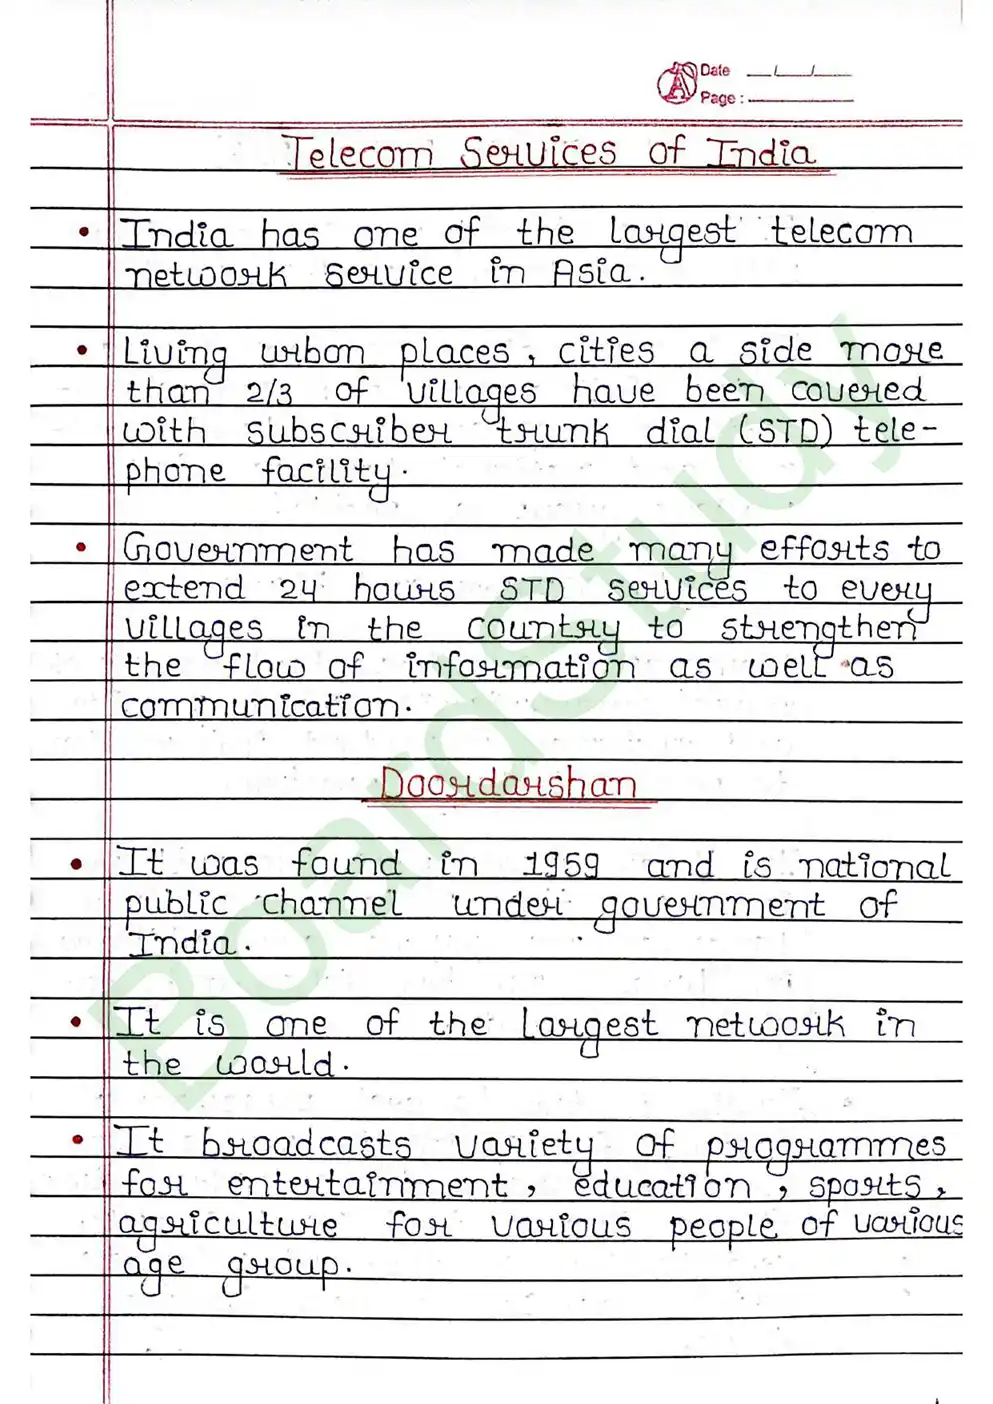 Date __/__/__
Page :
Telecom Services of India
• India has one of the largest telecom
network service in Asia.
• Living urban places, cities a side more
than 2/3 of villages have been covered
with subscriber trunk dial (STD) tele-
phone facility.
• Government has made many efforts to
extend 24 hours STD services to every
villages in the country to strengthen
the flow of information as well as
communication.
Doordarshan
• It was found in 1959 and is national
public channel under government of
India.
• It is one of the largest network in
the world.
• It broadcasts variety of programmes
for entertainment, education, sports,
agriculture for various people of various
age group.
BoardStudy